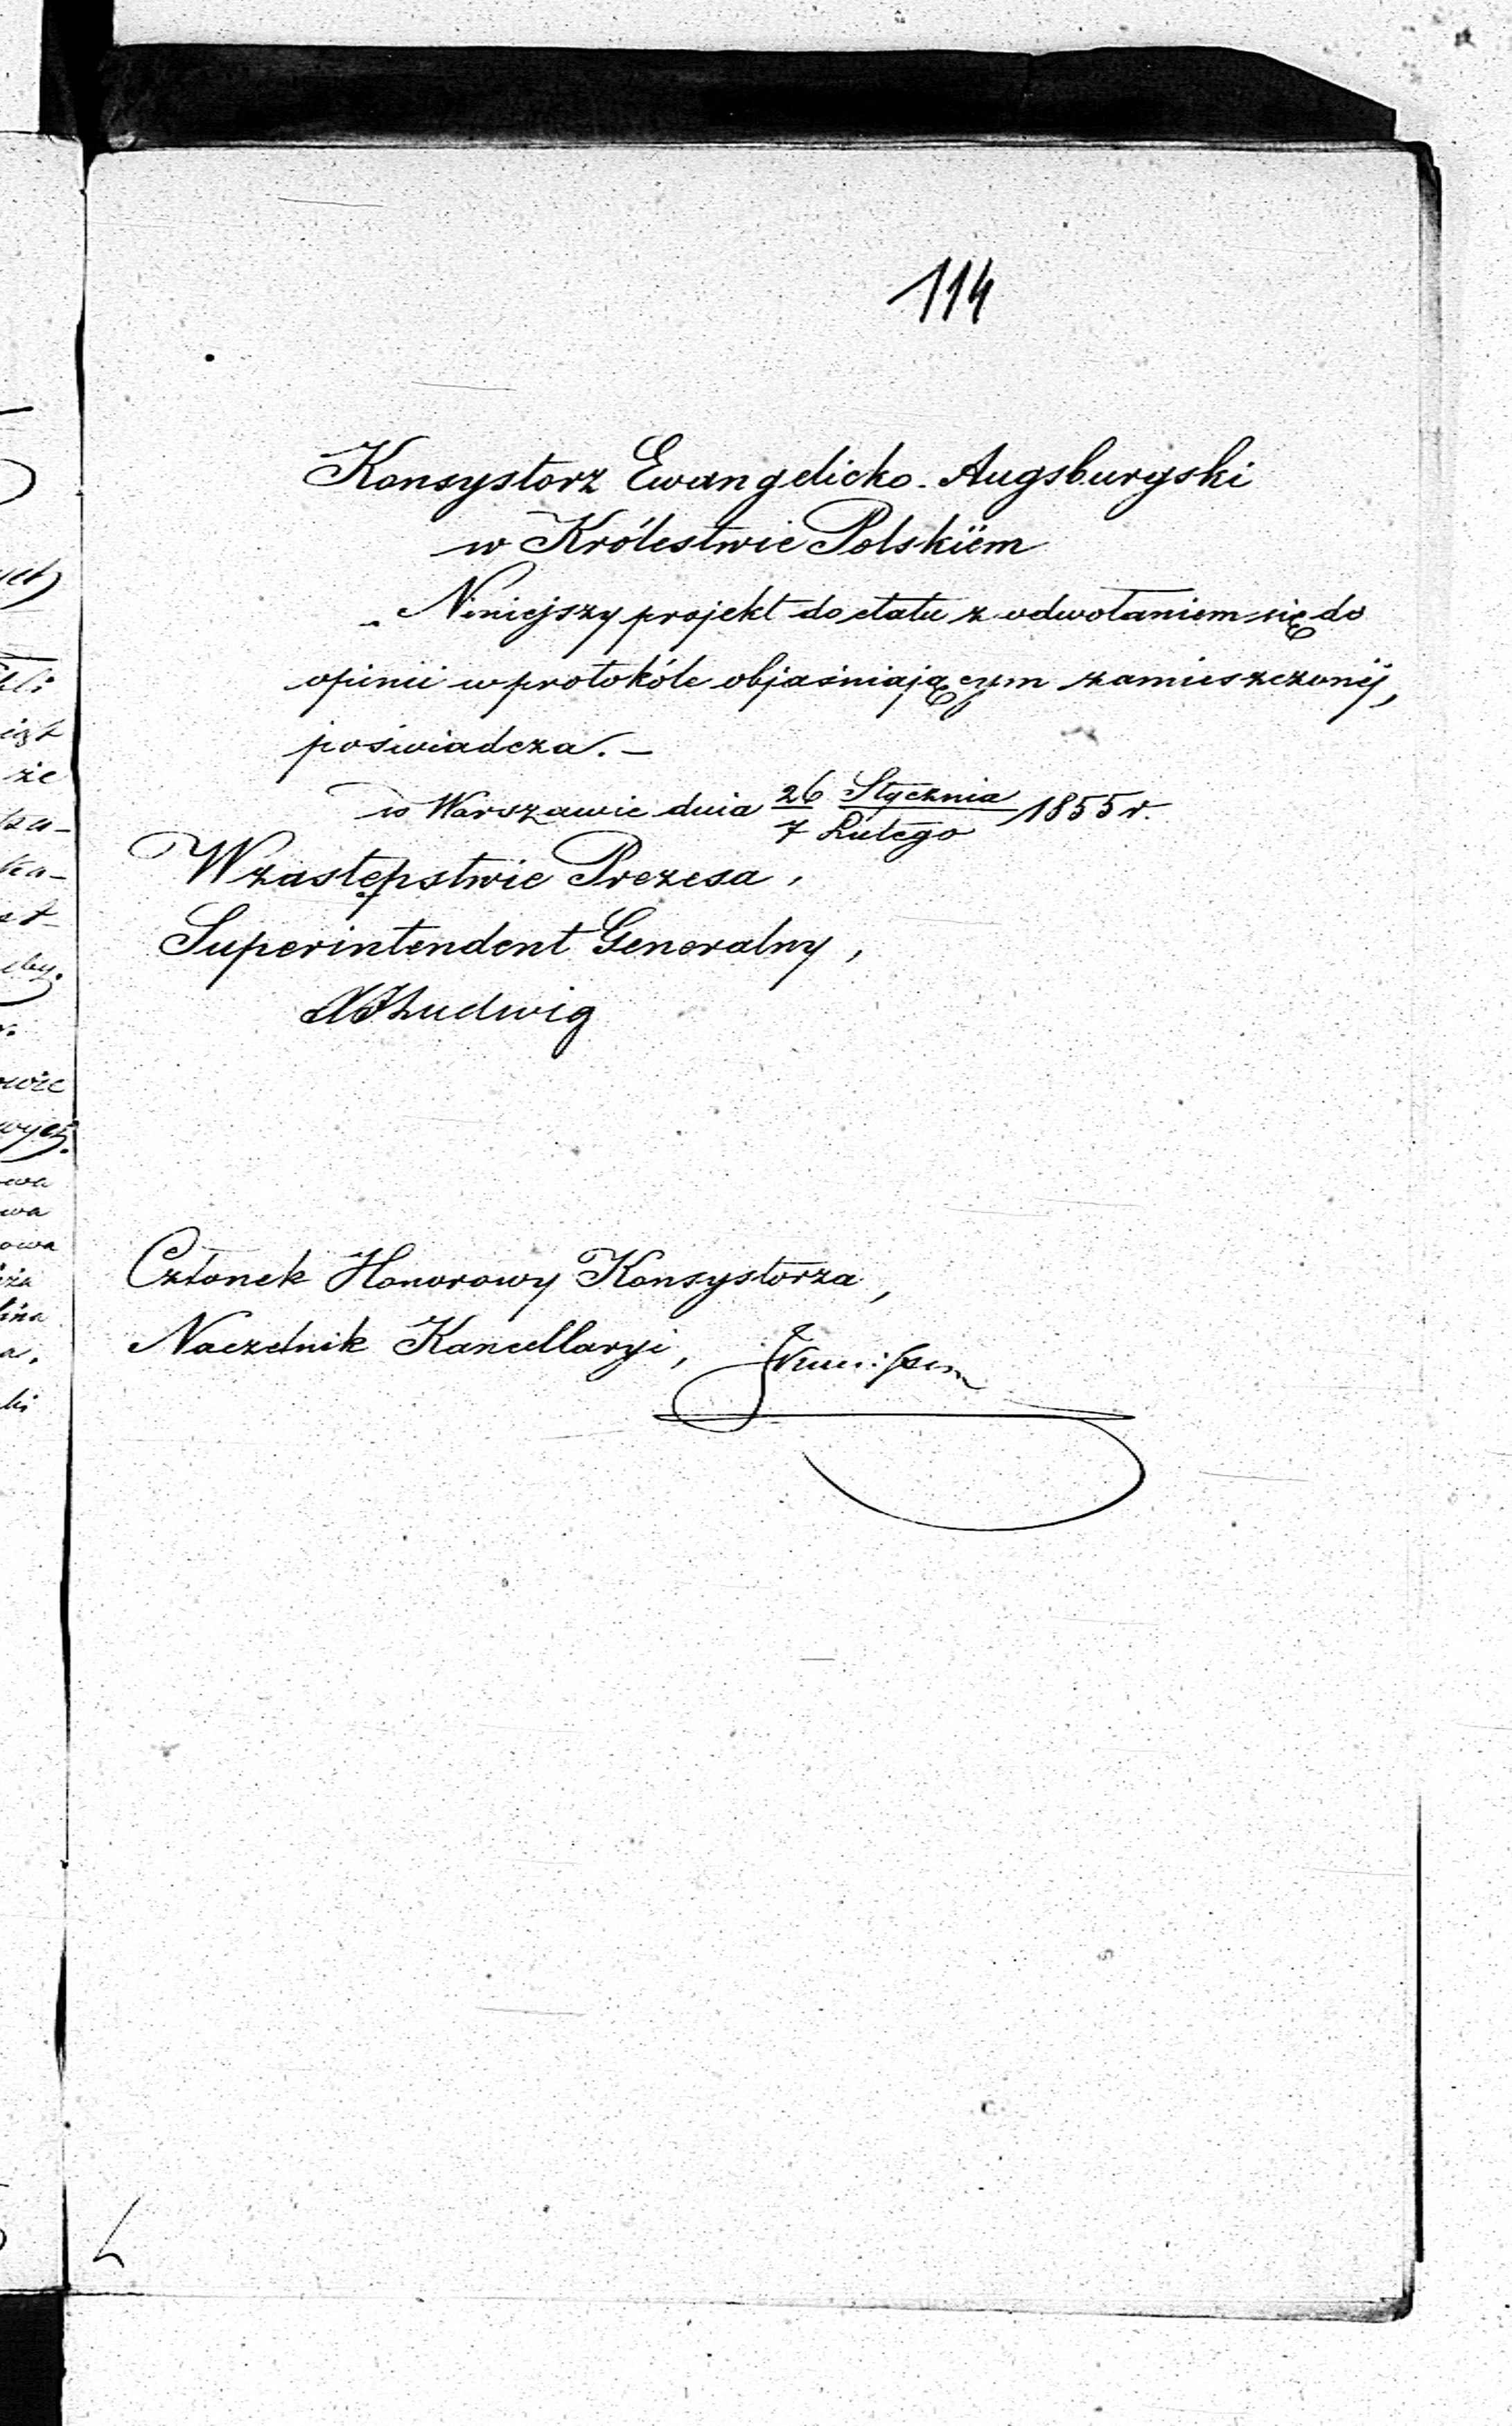 114
Konsystorz Ewangelicko-Augsburgski
w Królestwie Polskiém
Niniejszy projekt do etatu z odwołaniem się do
opinii w protokóle objaśniającym zamieszczonéj,
poświadcza. —
w Warszawie dnia 26 Stycznia / 7 Lutego 1855 r.
W zastępstwie Prezesa,
Superintendent Generalny,
Ludwig
Członek Honorowy Konsystorza,
Naczelnik Kancellaryi,